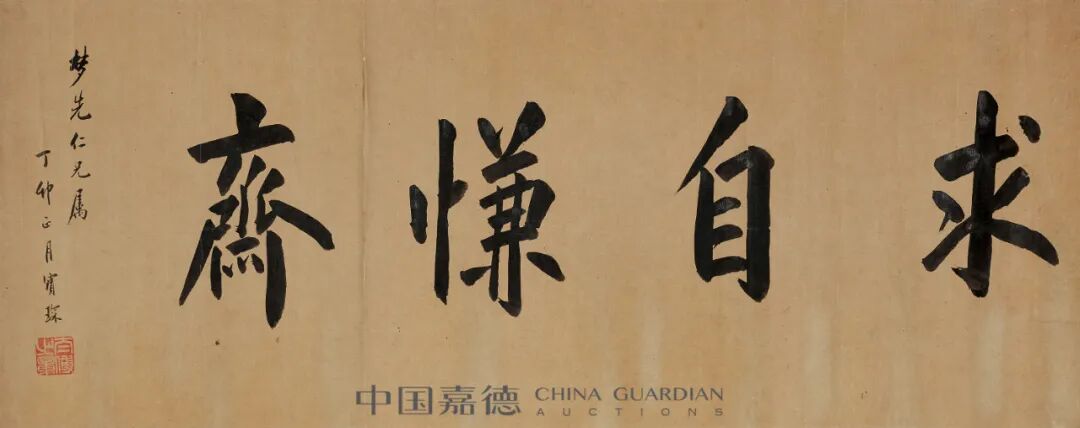 求自慊齋
梦先仁兄属
丁卯正月寶琛
中国嘉德 CHINA GUARDIAN
AUCTIONS